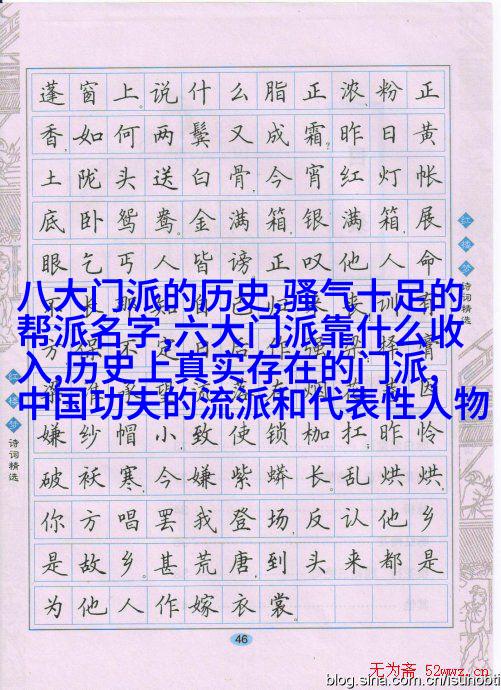 蓬窗上。说什么脂正浓、粉正
香,如何两鬓又成霜?昨日黄
土陇头送白骨,今宵红灯帐
底卧鸳鸯。金满箱,银满箱,展
眼乞丐人皆谤。正叹他人命
八大门派的历史,骚气十足的
帮派名字,六大门派靠什么收
入,历史上真实存在的门派,
中国功夫的流派和代表性人物
嫌纱帽小,致使锁枷扛;昨怜
破袄寒,今嫌紫蟒长。乱烘烘,
你方唱罢我登场,反认他乡
是故乡。甚荒唐,到头来都是
为他人作嫁衣裳。
红楼梦
诗词精选
红楼梦
诗词精选
46
无为斋 52wwz.cn